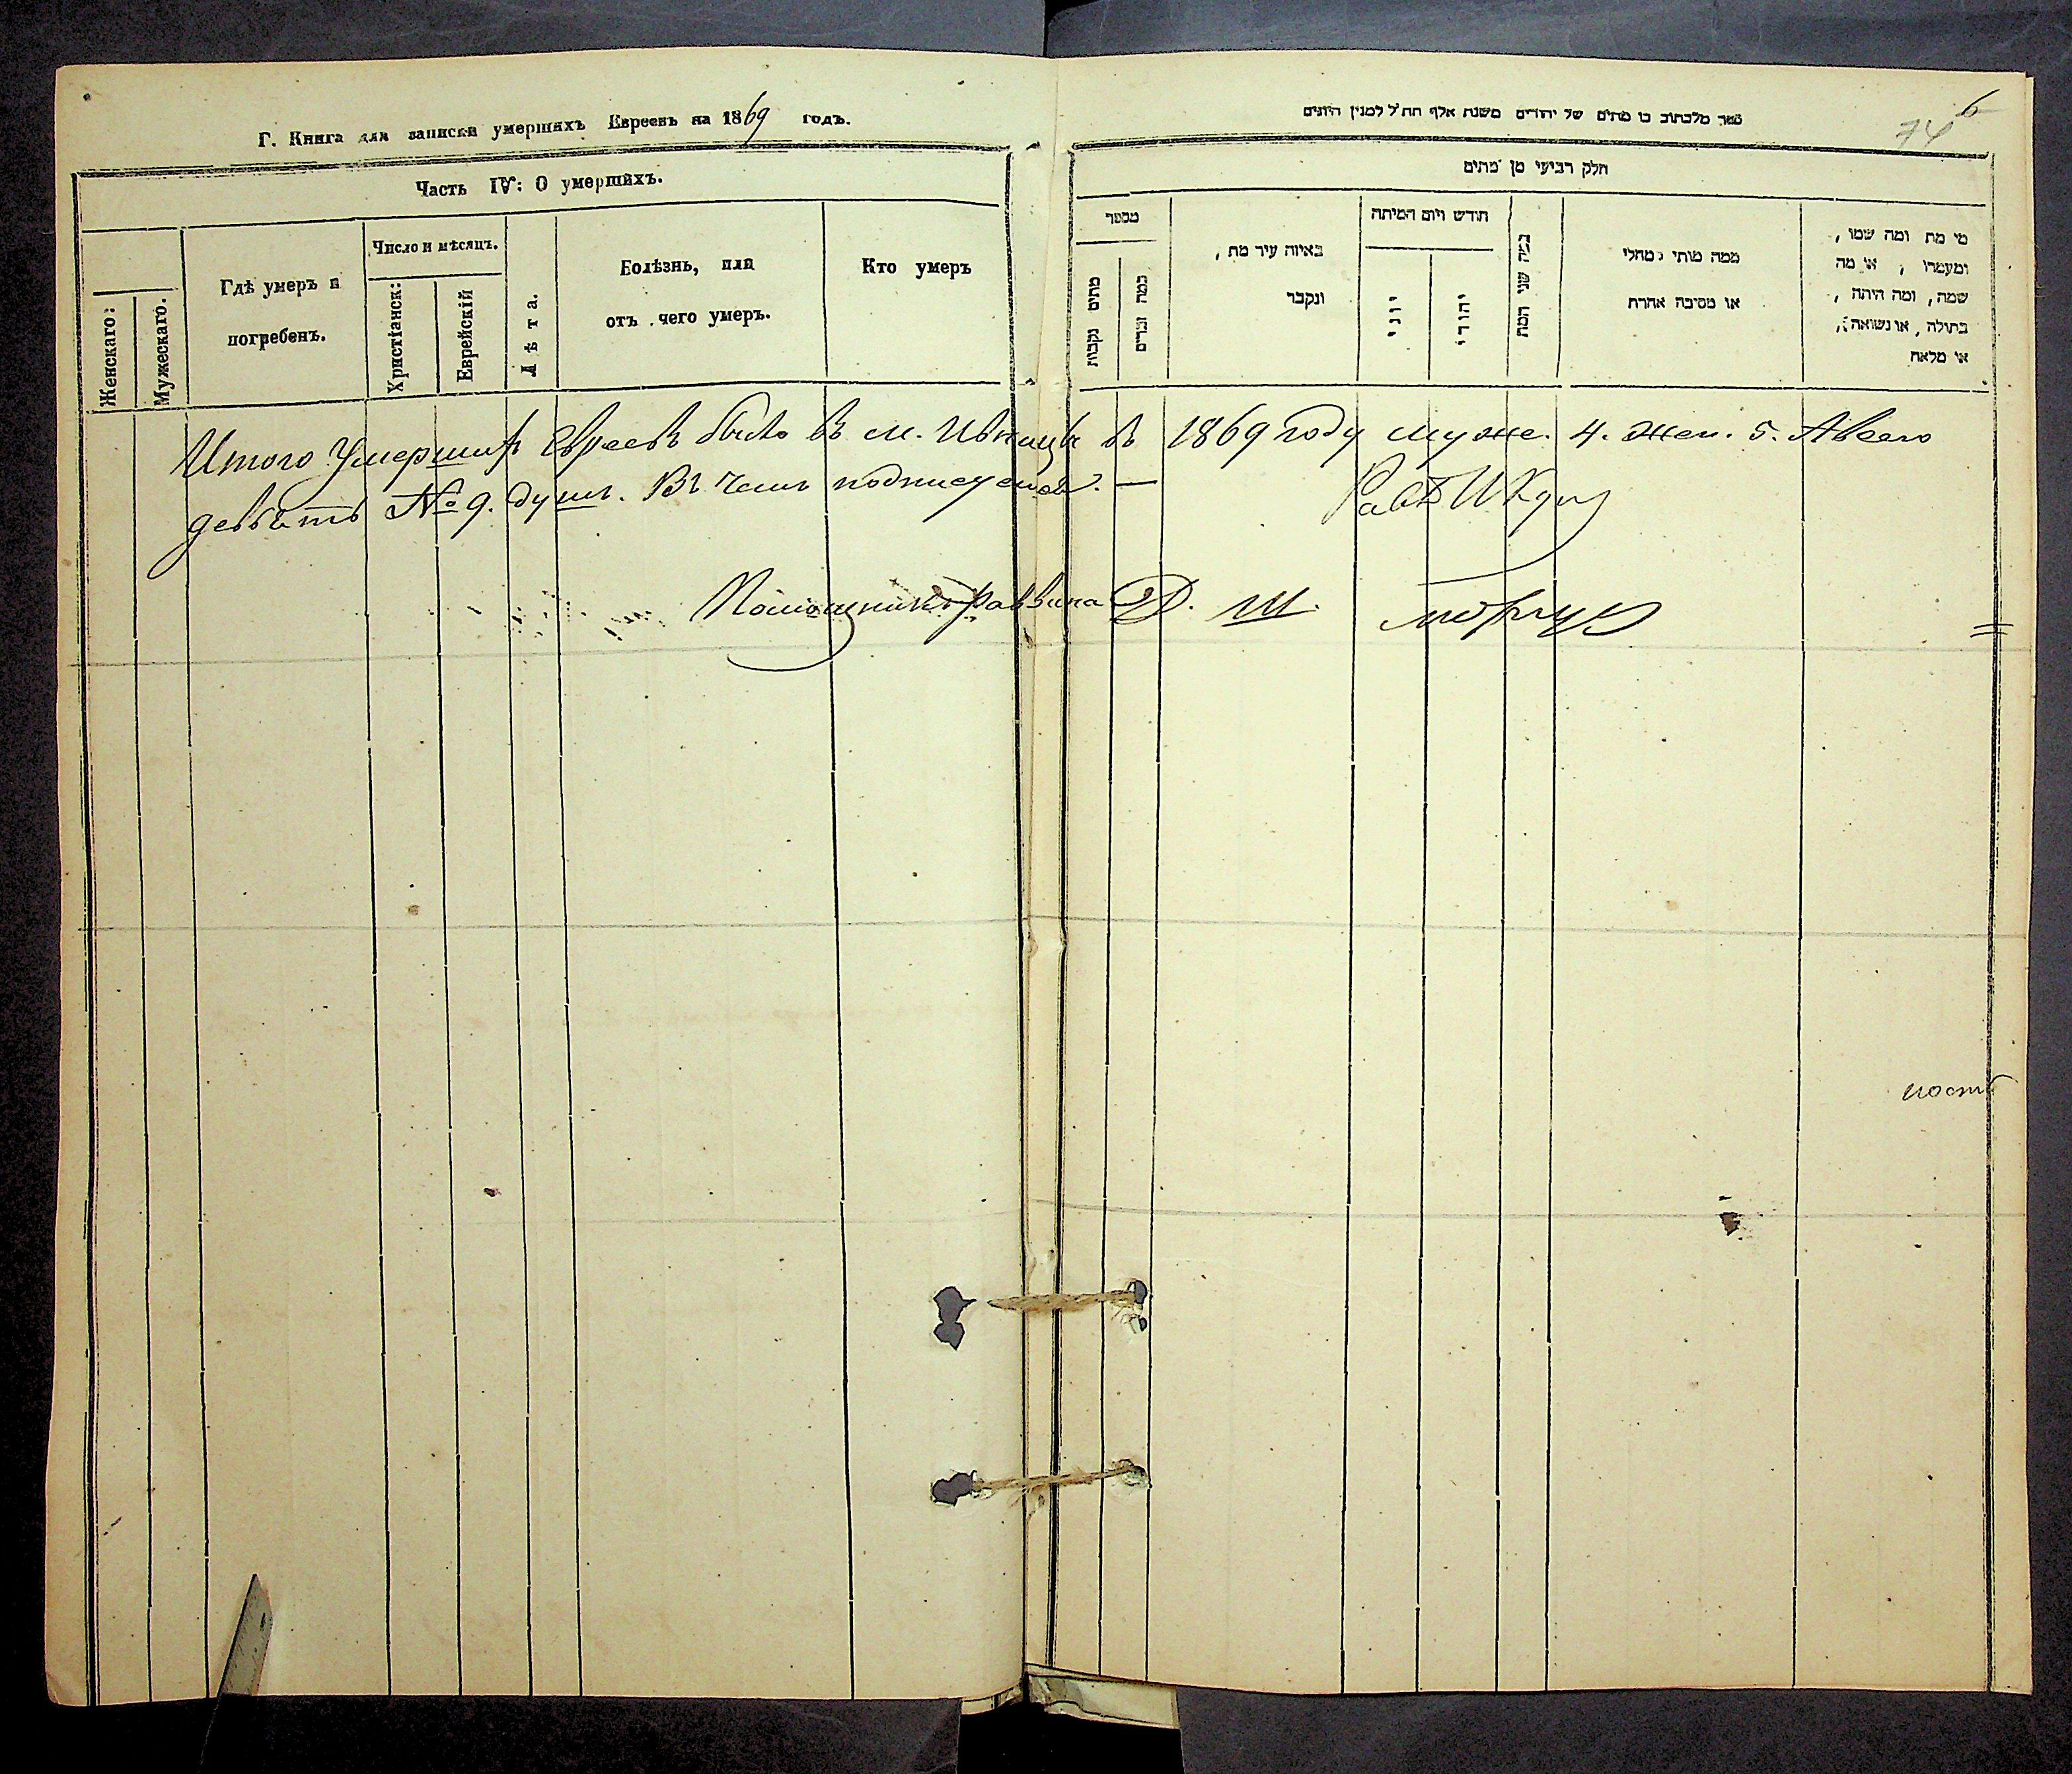 Г. Книга для записки умершихъ Евреевъ на 1869 годъ.
Часть IV: О умершихъ.
Женскаго:
Мужескаго.
Гдѣ умеръ и
погребенъ.
Число и мѣсяцъ.
Христіанск:
Еврейскій
Лѣта.
Болѣзнь, или
отъ чего умеръ.
Кто умеръ
6
74
ספר מלכתוב בו מתים של יהודים משנת אלף תת״ל למנין היונים
חלק רביעי מן מתים
מספר
מתים נקבות
כמה זכרים
באיזה עיר מת,
ונקבר
חודש ויום המיתה
יוני
יהודי
כמה שני המת
ממה מותי מחלי
או מסיבה אחרת
מי מת ומה שמו,
ומעמדו, או מה
שמה, ומה היתה,
בתולה, או נשואה,
או מלאה
Итого Умершихъ Евреевъ было въ м. въ 1869 году муже. 4. жен. 5. А всего
девять № 9. душъ. Въ чемъ подписуемся. —
Помощникъ раввина Ш.